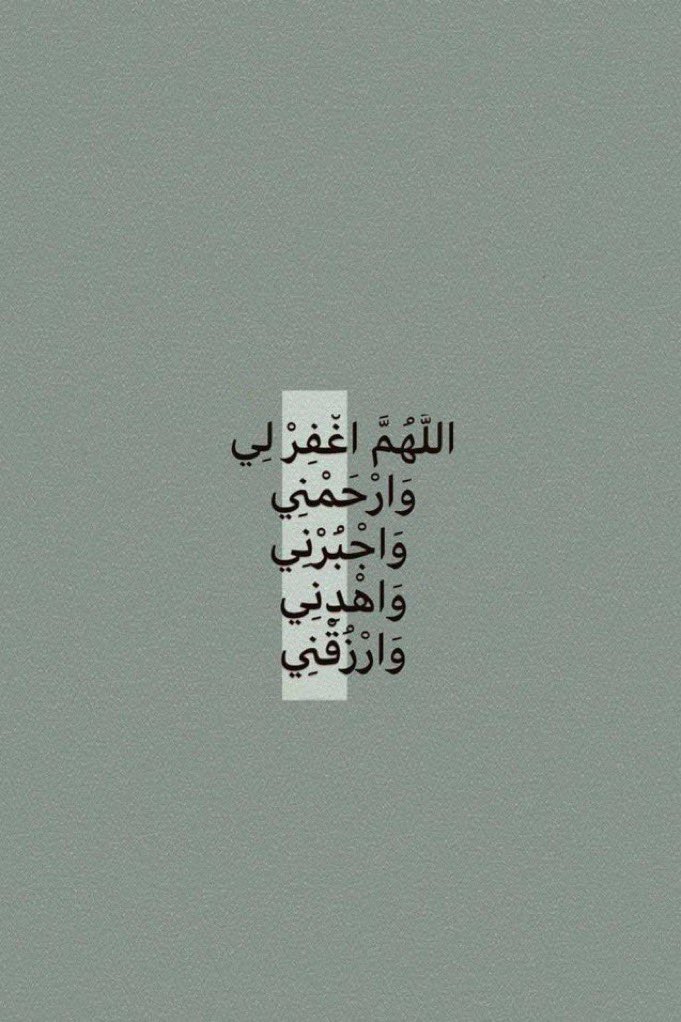 اللَّهُمَّ اغْفِرْ لِي
وَارْحَمْنِي
وَاجْبُرْنِي
وَاهْدِنِي
وَارْزُقْنِي